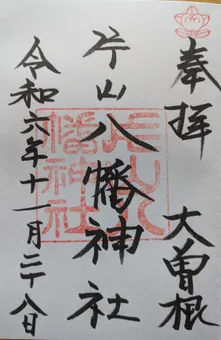 奉拝 大曽根
片山八幡神社
令和六年十一月二十八日
片山八幡神社